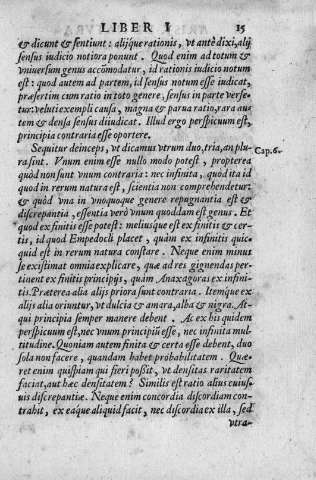 LIBER I 15
& dicunt & sentiunt: alijsque rationis, vt antè dixi, alij
sensus iudicio notiora ponunt. Quod enim ad totum &
vniuersum genus accõmodatur, id rationis iudicio notum
est: quod autem ad partem, id sensus notum esse iudicat,
præsertim cum ratio in toto genere, sensus in parte verse-
tur: veluti exempli causa, magna & parua ratio, rara au-
tem & densa sensus diiudicat. Illud ergo perspicuum est,
principia contraria esse oportere.
Sequitur deinceps, vt dicamus vtrum duo, tria, an plu-
ra sint. Vnum enim esse nullo modo potest, propterea Cap.6.
quòd non sunt vnum contraria: nec infinita, quòd ita id
quod in rerum natura est, scientia non comprehendetur:
& quòd vna in vnoquoque genere repugnantia est &
discrepantia, essentia verò vnum quoddam est genus. Et
quod ex finitis esse potest: meliusque est ex finitis & cer-
tis, id quod Empedocli placet, quàm ex infinitis quic-
quid est in rerum natura constare. Neque enim minus
se existimat omnia explicare, quæ ad res gignendas per-
tinent ex finitis principijs, quàm Anaxagoras ex infini-
tis. Præterea alia alijs priora sunt contraria. Itemque ex
alijs alia oriuntur, vt dulcia & amara, alba & nigra. At-
qui principia semper manere debent. Ac ex his quidem
perspicuum est, nec vnum principiũ esse, nec infinita mul-
titudine. Quoniam autem finita & certa esse debent, duo
sola non facere, quandam habet probabilitatem. Quæ-
ret enim quispiam qui fieri poßit, vt densitas raritatem
faciat, aut hæc densitatem? Similis est ratio alius cuius-
uis discrepantiæ. Neque enim concordia discordiam con-
trahit, ex eaque aliquid facit, nec discordia ex illa, sed
vtra-